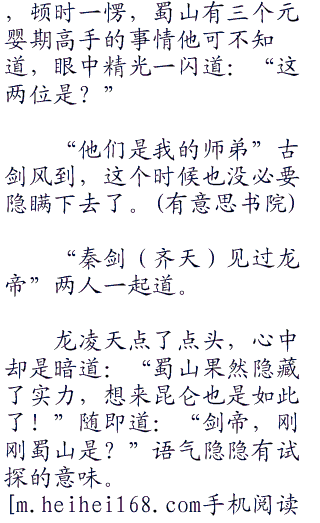 ，顿时一愣，蜀山有三个元
婴期高手的事情他可不知
道，眼中精光一闪道：“这
两位是？”
“他们是我的师弟”古
剑风到，这个时候也没必要
隐瞒下去了。(有意思书院)
“秦剑（齐天）见过龙
帝”两人一起道。
龙凌天点了点头，心中
却是暗道：“蜀山果然隐藏
了实力，想来昆仑也是如此
了！”随即道：“剑帝，刚
刚蜀山是？”语气隐隐有试
探的意味。
[m.heihei168.com手机阅读